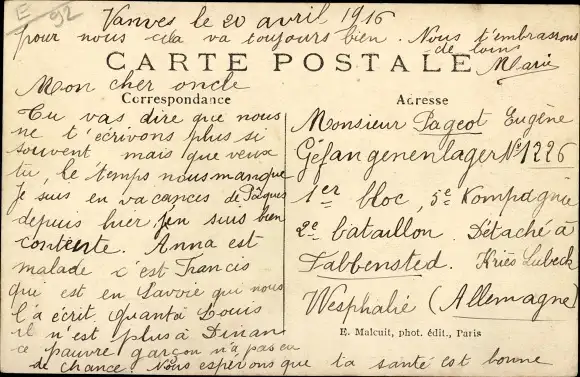 E 92
Vanves le 20 avril 1916
pour nous cela va toujours bien. Nous t'embrassons
de loin
Marie
CARTE POSTALE
Mon cher oncle
Correspondance
Tu vas dire que nous
ne t'écrivons plus si
souvent mais que veux
tu, le temps nous manque
Je suis en vacances de Pâques
depuis hier, j'en suis bien
contente. Anna est
malade c'est Francis
qui est en Savoie qui nous
l'a écrit. Quant à Louis
il n'est plus à Dinan
ce pauvre garçon n'a pas eu
de chance. Nous espérons que ta santé est bonne
Adresse
Monsieur Pageot Eugène
Géfangenenlager No 1226
1er bloc, 5e Kompagnie
2e bataillon. Détaché à
Fabbensted. Kries Lubeck
Wesphalie (Allemagne)
E. Malcuit, phot. édit., Paris